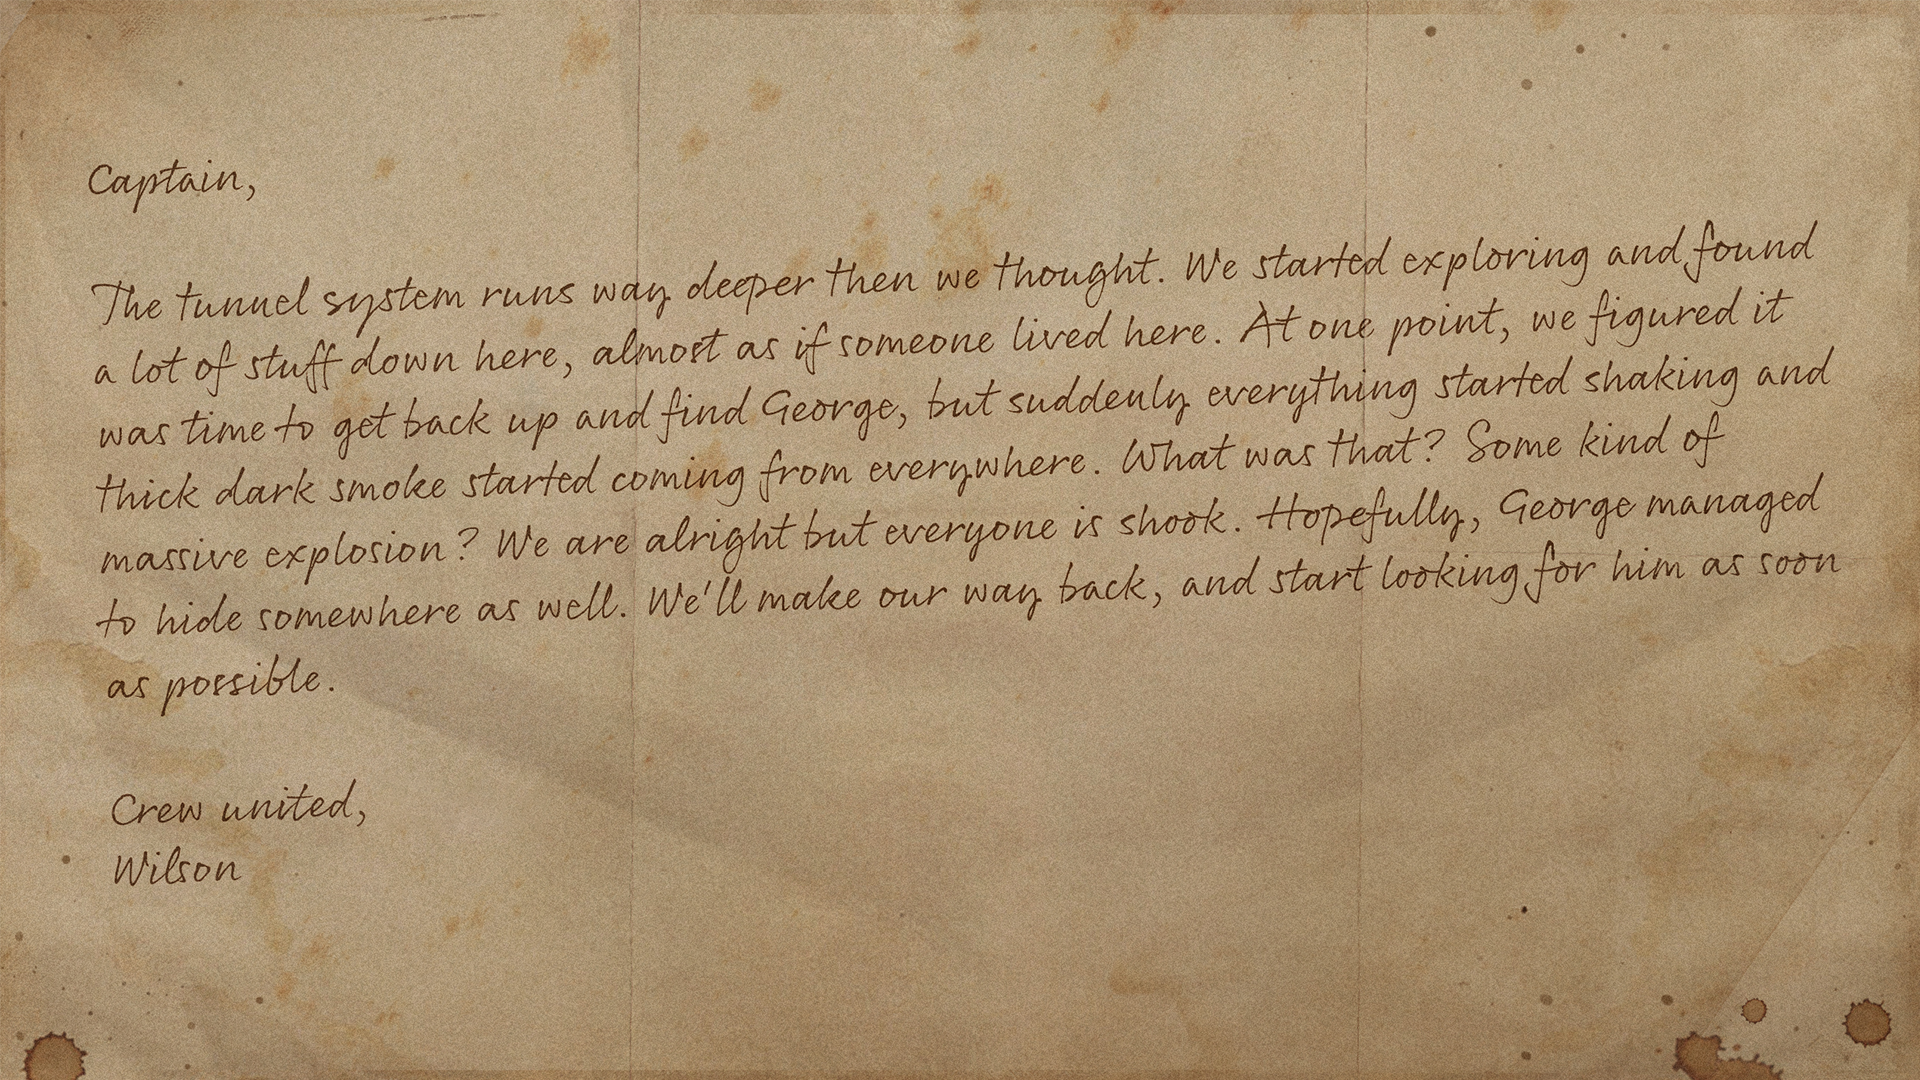 Captain,
The tunnel system runs way deeper then we thought. We started exploring and found
a lot of stuff down here, almost as if someone lived here. At one point, we figured it
was time to get back up and find George, but suddenly everything started shaking and
thick dark smoke started coming from everywhere. What was that? Some kind of
massive explosion? We are alright but everyone is shook. Hopefully, George managed
to hide somewhere as well. We'll make our way back, and start looking for him as soon
as possible.
Crew united,
Wilson